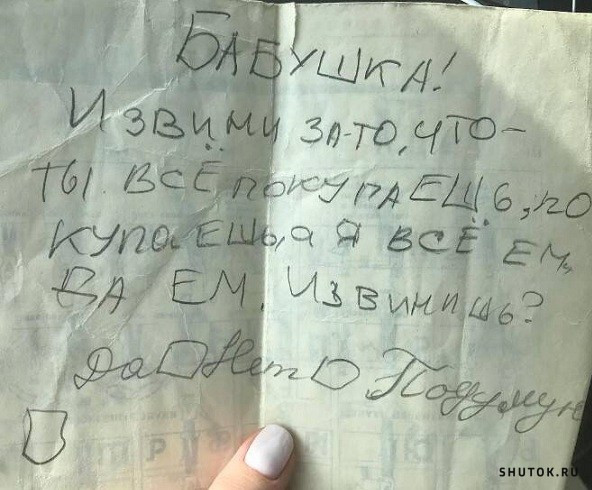 БАБУШКА!
ИЗВИМИ ЗА-ТО, ЧТО-
ТЫ. ВСЁ ПОКУПАЕЩЬ, ПО
КУПАЕШЬ, А Я ВСЁ ЕМ,
ДА ЕМ. ИЗВИНИШЬ?
Да Нет Подумую
SHUTOK.RU